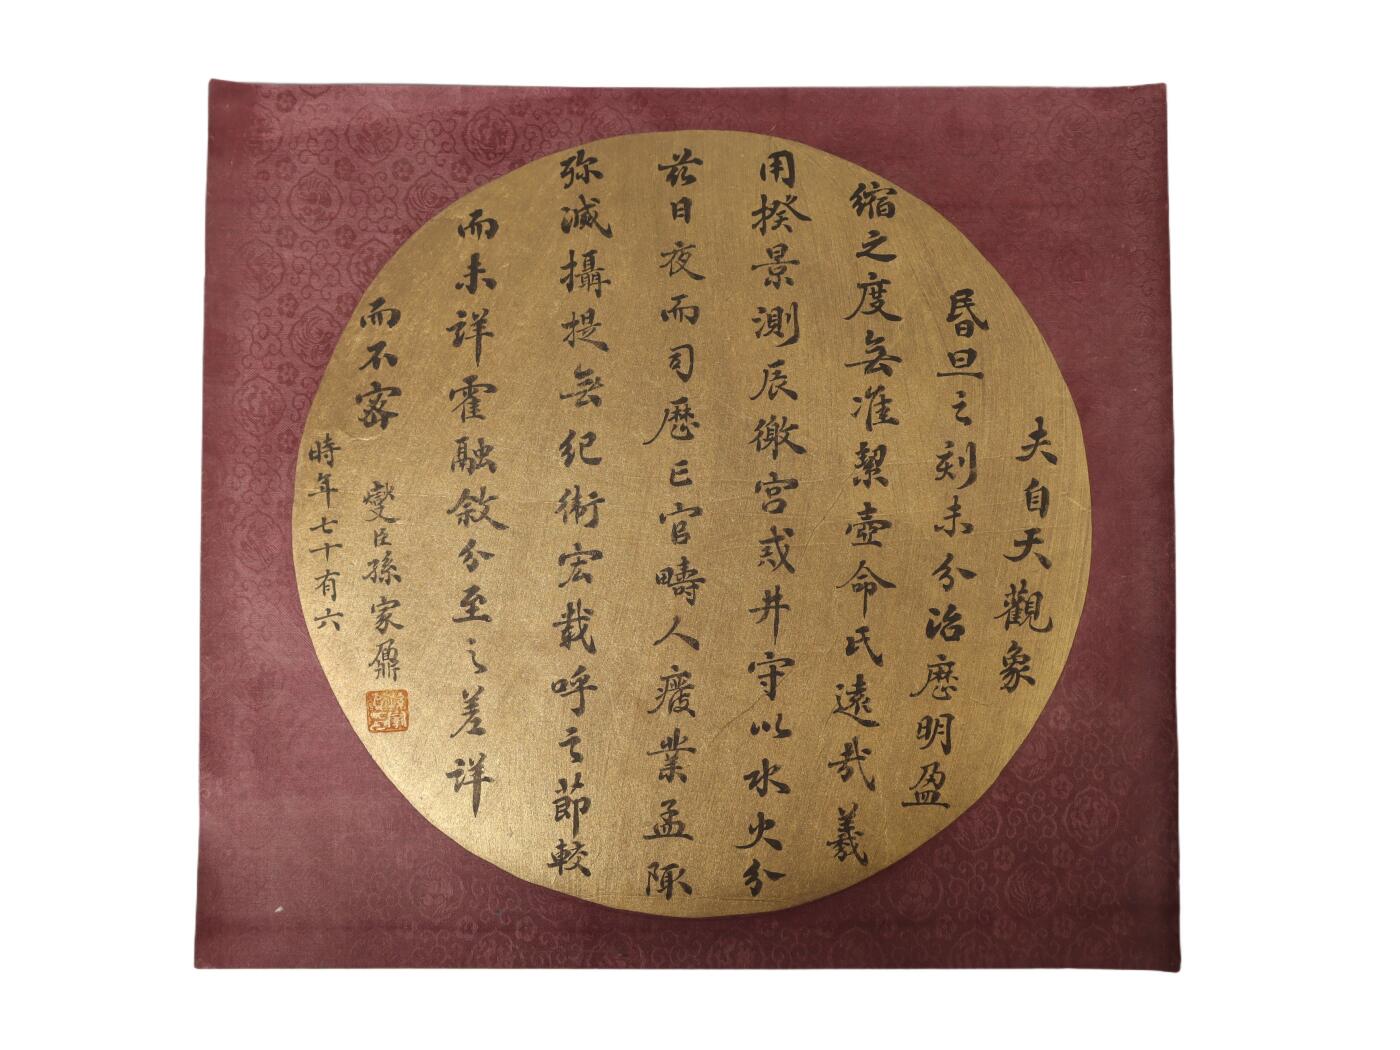 夫自天觀象
昏旦之刻未分治歷明盈
縮之度無准挈壺命氏遠哉羲
用揆景測辰徼宮戒井守以水火分
茲日夜而司歷亡官疇人廢業孟陬
殄滅攝提無紀衛宏載呼之節較
而未詳霍融敘分至之差詳
而不密
燮臣孫家鼐
時年七十有六